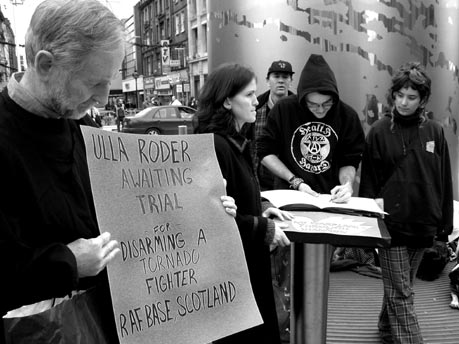 ULLA RODER
AWAITING
TRIAL
FOR
DISARMING A
TORNADO
FIGHTER
R.A.F. BASE, SCOTLAND